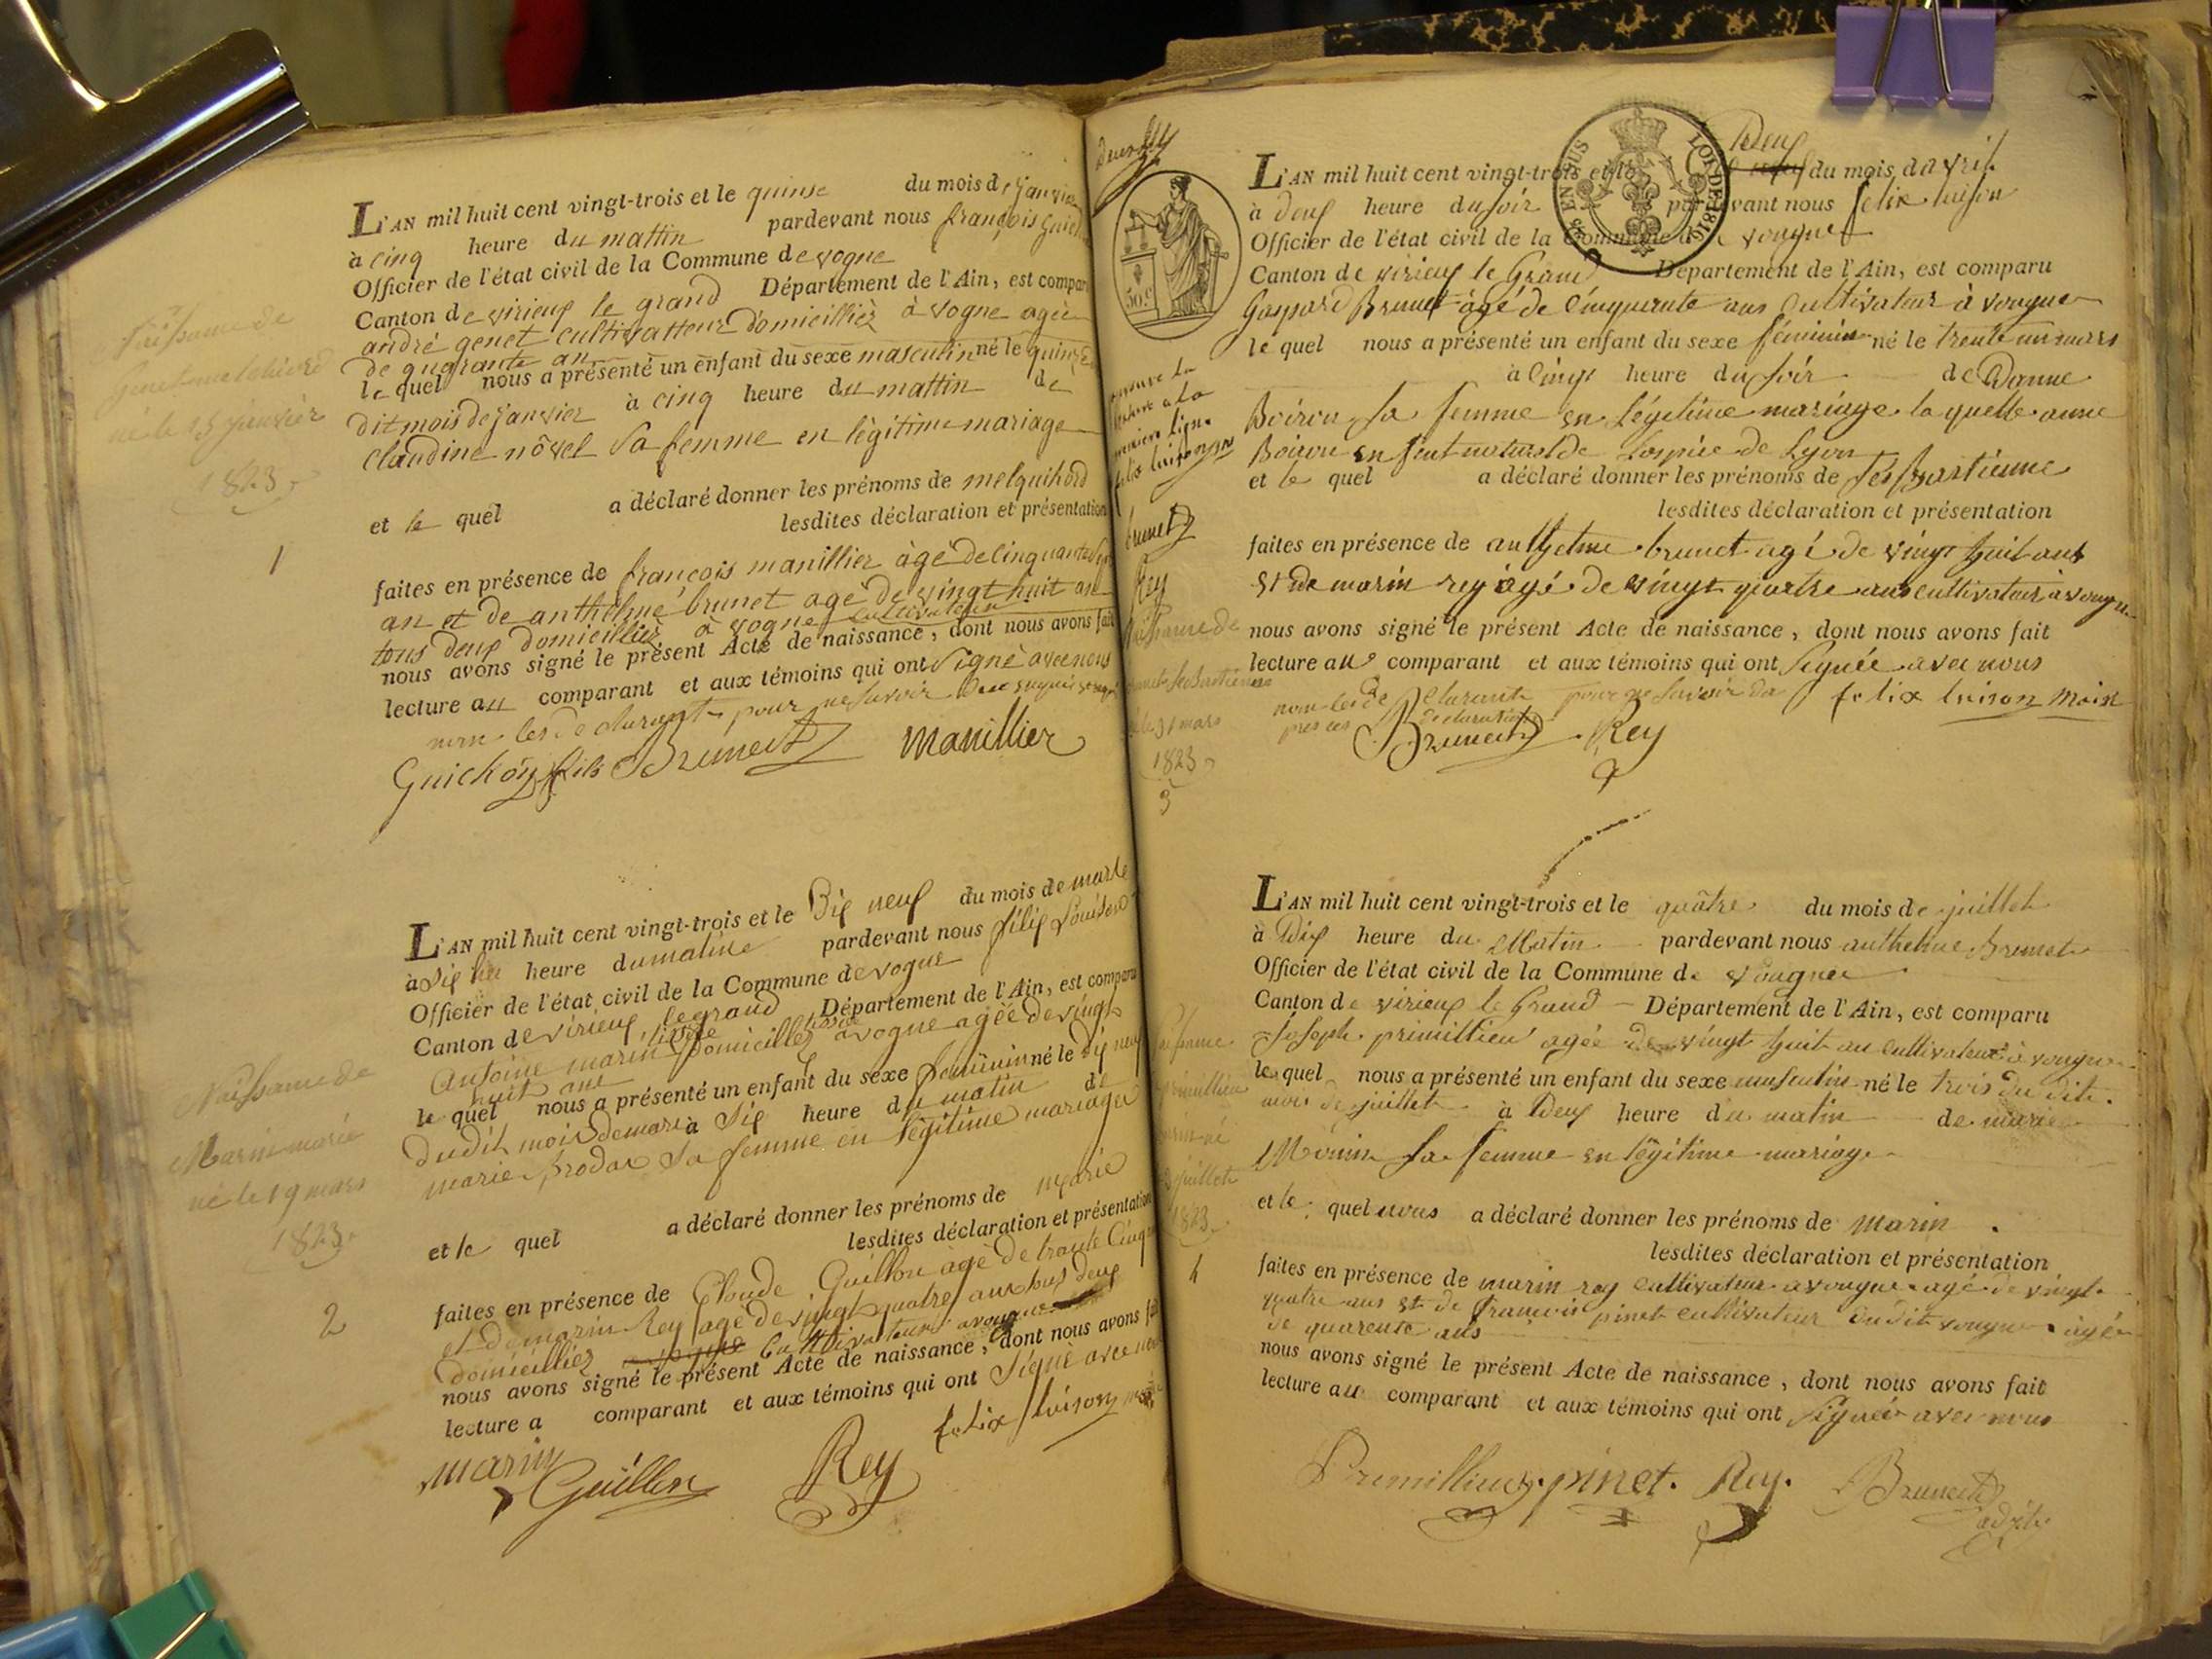 L'AN mil huit cent vingt-trois et le quinse du mois de janvier
à cinq heure du mattin pardevant nous françois
Officier de l'état civil de la Commune de vogne
Canton de virieux le grand Département de l'Ain, est comparu
andré genet cultivatteur domicillièz à vogne agèe
de quarante an
le quel nous a présenté un enfant du sexe masculin né le quinze
dit mois de janvier à cinq heure du mattin de
claudine nôvel sa femme en légitime mariage
et le quel a déclaré donner les prénoms de melquihord
lesdites déclaration et présentation
faites en présence de françois manillier àgé de cinquante
an et de anthelme brunet agé de vingt huit an
tous deux domicilliéz à vogne cultivateur
nous avons signé le présent Acte de naissance, dont nous avons fait
lecture au comparant et aux témoins qui ont signé avec nous
non les declarant pour ne savoir
Guichon fils Brunet manillier
né le 15 janvier
1823
1
L'AN mil huit cent vingt-trois et le Dix neuf du mois de mars
à Six heure du matine pardevant nous félix Louison
Officier de l'état civil de la Commune de vogne
Canton de virieux le grand Département de l'Ain, est comparu
Antoine marin domicilliez à vogne agée de vingt
huit ans
le quel nous a présenté un enfant du sexe féminin né le Dix neuf
dudit mois de mars à Six heure du matin de
marie sa femme en légitime mariage
et le quel a déclaré donner les prénoms de marie
lesdites déclaration et présentation
faites en présence de Claude Guillon agé de trante Cinq
et de marin Rey agé de vingt quatre ans tous deux
domicilliez Cultivateurs a vougne
nous avons signé le présent Acte de naissance, dont nous avons fait
lecture a comparant et aux témoins qui ont Signé avec nous
marin Guillon Rey felix luison
Naissance de
Marin marie
né le 19 mars
1823
2
L'AN mil huit cent vingt-trois et le Deux du mois d'avril
à deux heure du soir pardevant nous felix luison
Officier de l'état civil de la Commune de vougne
Canton de virieux le Grand Département de l'Ain, est comparu
Gaspard Brunet àgé de Cinquante ans Cultivateur à vougne
le quel nous a présenté un enfant du sexe féminin né le trente un mars
à Cinq heure du soir de Danne
Boiron sa femme en Légitime mariage la quelle anne
Boiron enfent naturel de Lospice de Lyon
et le quel a déclaré donner les prénoms de Sesbastienne
lesdites déclaration et présentation
faites en présence de anthelme brunet agé de vingt huit ans
et de marin rey àgé de vingt quatre ans cultivateur à vougne
nous avons signé le présent Acte de naissance, dont nous avons fait
lecture au comparant et aux témoins qui ont Signée avec nous
non les declarants pour ne savoir felix luison maire
Brunet Rey
TIMBRE
LOI DE 1816
50 c
brunet
Rey
Naissance de
31 mars
1823
3
L'AN mil huit cent vingt-trois et le quâtre du mois de juillet
à Dix heure du Matin pardevant nous anthelme Brunet
Officier de l'état civil de la Commune de vougne
Canton de virieux le Grand Département de l'Ain, est comparu
Joseph primillieu agée de vingt huit an Cultivateur à vougne
le quel nous a présenté un enfant du sexe masculin né le trois du dit
mois de juillet à Deux heure du matin de marie
Monin sa femme en légitime mariage
et le quel nous a déclaré donner les prénoms de marin
lesdites déclaration et présentation
faites en présence de marin rey cultivateur a vougne agé de vingt
quatre ans et de françois pinet cultivateur dudit vougne agée
de quarente ans
nous avons signé le présent Acte de naissance, dont nous avons fait
lecture au comparant et aux témoins qui ont signée avec nous
Premillieu pinet. Rey. Brunet
juillet
1823
4